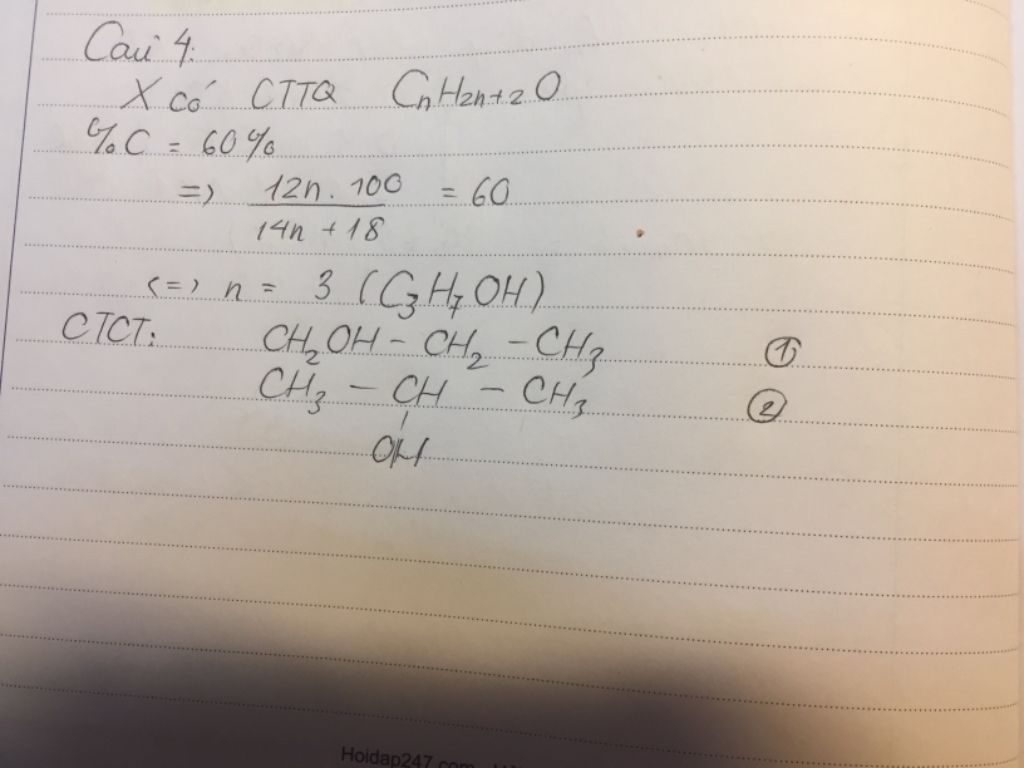 Câu 4:
X có CTTQ CnH2n+2O
%C = 60%
=> 12n. 100 / 14n + 18 = 60
<=> n = 3 (C3H7OH)
CTCT: CH2OH - CH2 - CH3 ①
CH3 - CH - CH3 ②
OH
Hoidap247.com